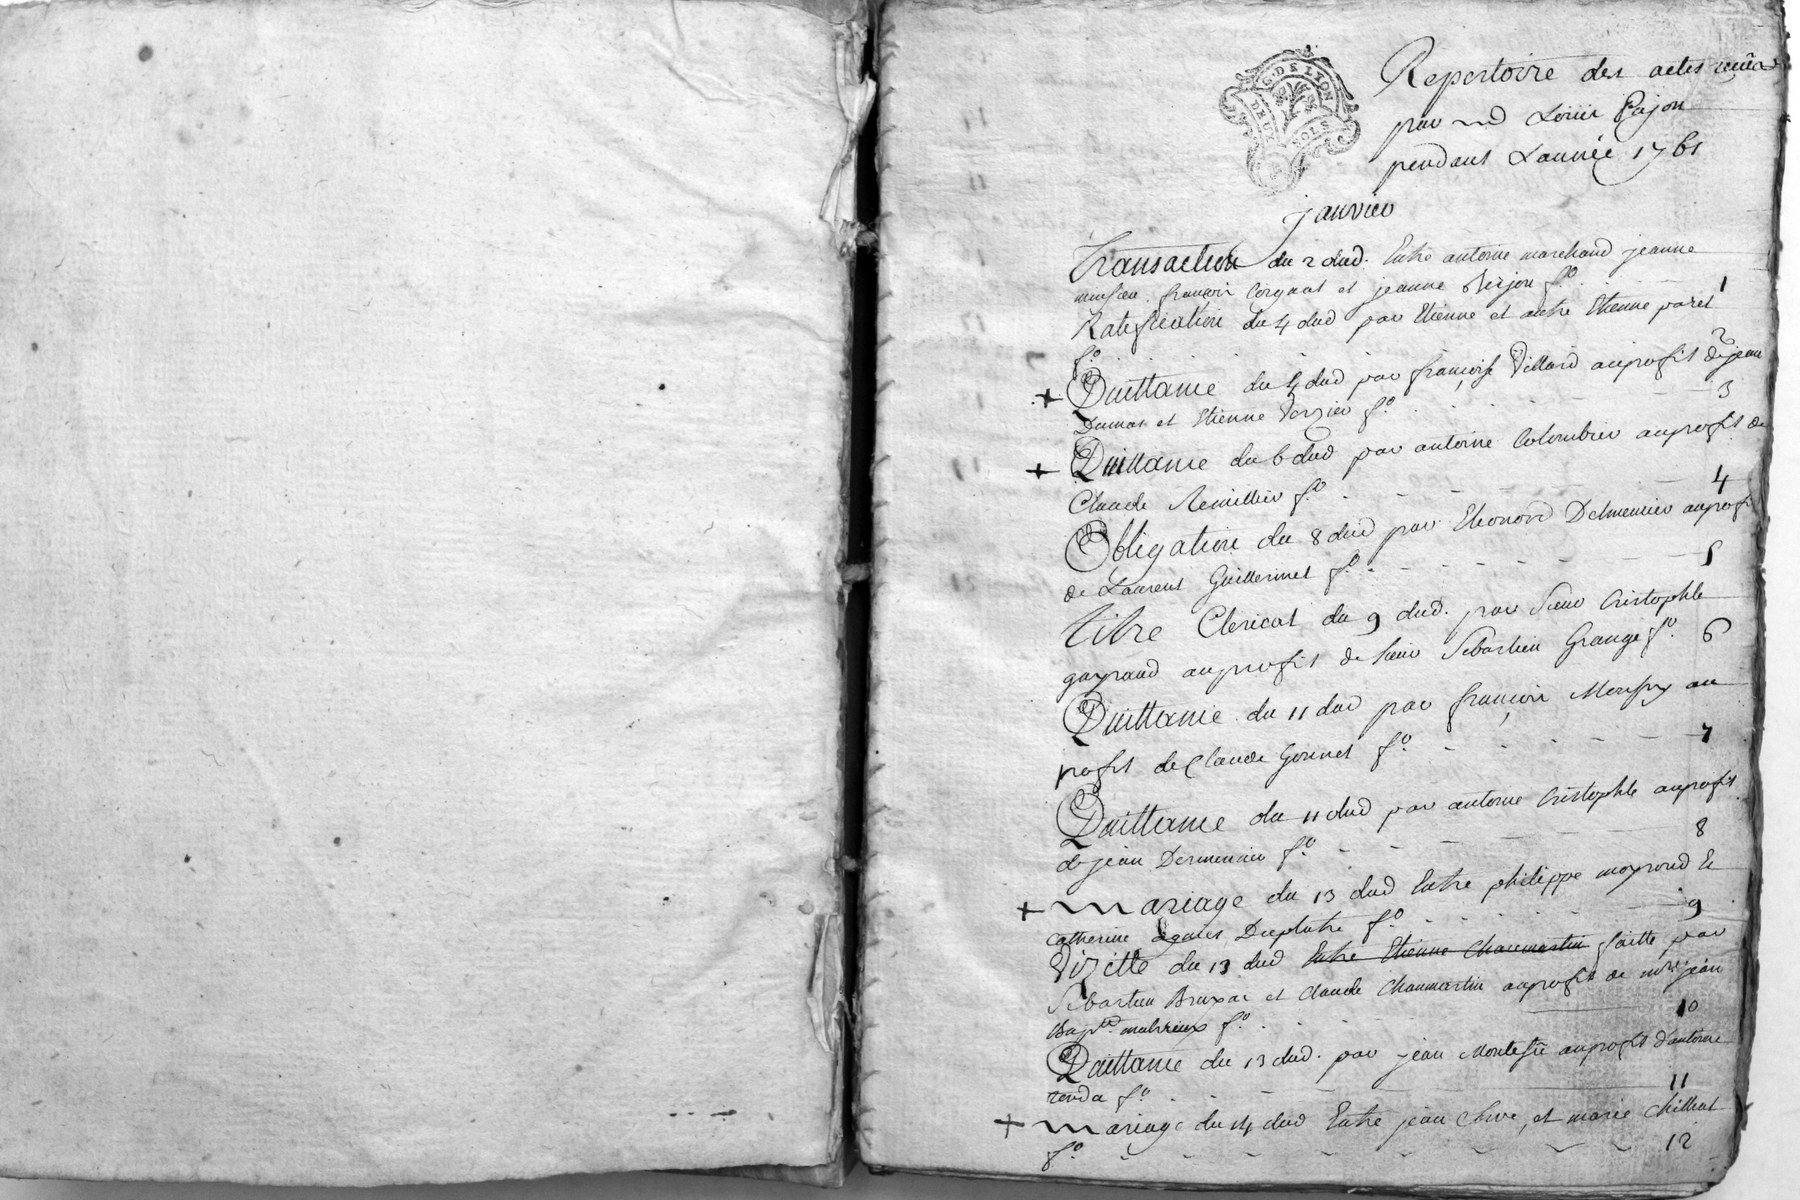 G. DE LYON
DEUX SOLS
Repertoire des actes reçus
par md Louis Pajon
pendant Lannée 1761
janvier
Transaction du 2 dud. Entre antoine marchand jeanne
françois Corgnat et jeanne fo. 1
Ratification du 4 dud par Etienne et autre Etienne paret
fo. 2
+ Quittance du 4 dud par françoise Villard auprofit de jean
Dumas et Etienne Verzier fo. 3
+ Quittance du 6 dud par antoine Colombier auprofit de
Claude Remillier fo. 4
Obligation du 8 dud par Eleonord Delmenier auprofit
de Laurent Guillermet fo. 5
Titre Clerical du 9 dud. par Sieur Cristophle
gayraud auprofit de sieur Sebastien Grange fo. 6
Quittance du 11 dud par françois au
profit de Claude Gonnet fo. 7
Quittance du 11 dud par antoine Cristophle auprofit
de jean Dormencier fo. 8
+ Mariage du 13 dud Entre philippe moyroud Et
Catherine agnes fo. 9
Vizitte du 13 dud Entre Etienne Chaumartin faitte par
Sebastien Bruyas et Claude Chaumartin auprofit de mre jean
Bapte. fo. 10
Quittance du 13 dud. par jean auprofit d'antoine
fo. 11
+ Mariage du 14 dud Entre jean et marie Chillat
fo. 12